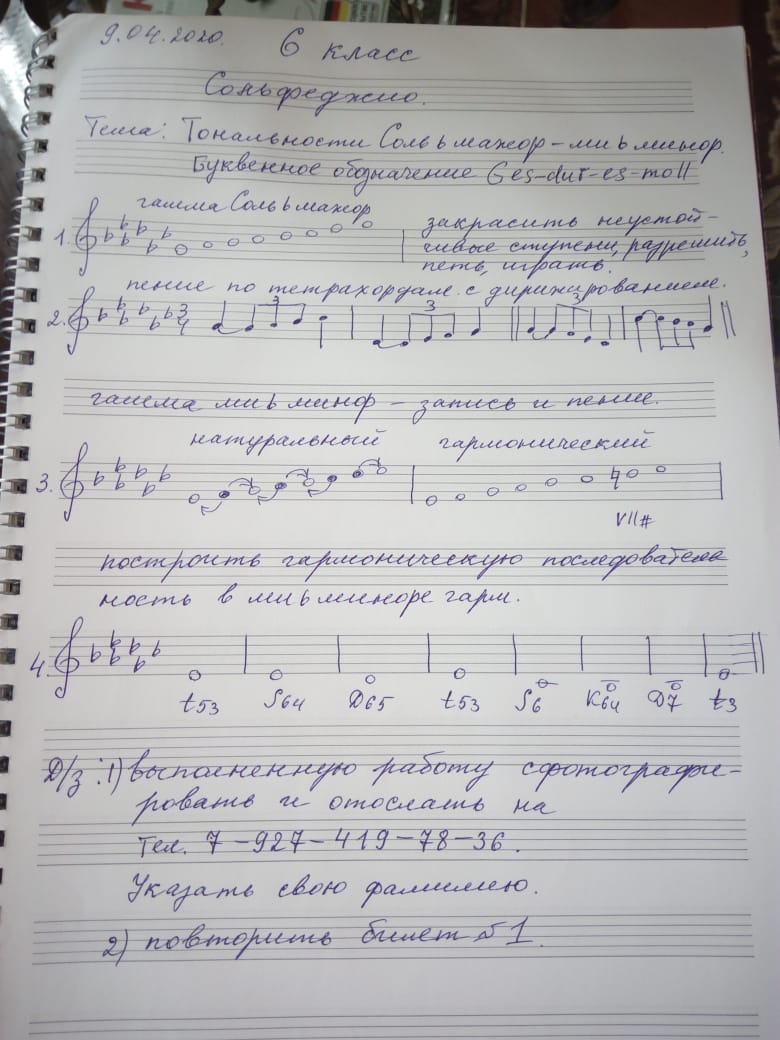 9.04.2020.
6 класс
Сольфеджио.
Тема: Тональности Соль ь мажор – ми ь минор.
Буквенное обозначение Ges-dur-es-moll
гамма Соль ь мажор
1.
закрасить неустой-
чивые ступени, разрешить,
петь, играть.
пение по тетрахордам с дирижированием.
2.
3
4
3
3
3
гамма ми ь минор – запись и пение.
натуральный гармонический
3.
VII#
построить гармоническую последователь
ность в ми ь миноре гарм.
4.
t53 S64 D65 t53 S6 K64 D7 t3
Д/з: 1) выполненную работу сфотографи-
ровать и отослать на
Тел. 7-927-419-78-36.
Указать свою фамилию.
2) повторить билет №1.